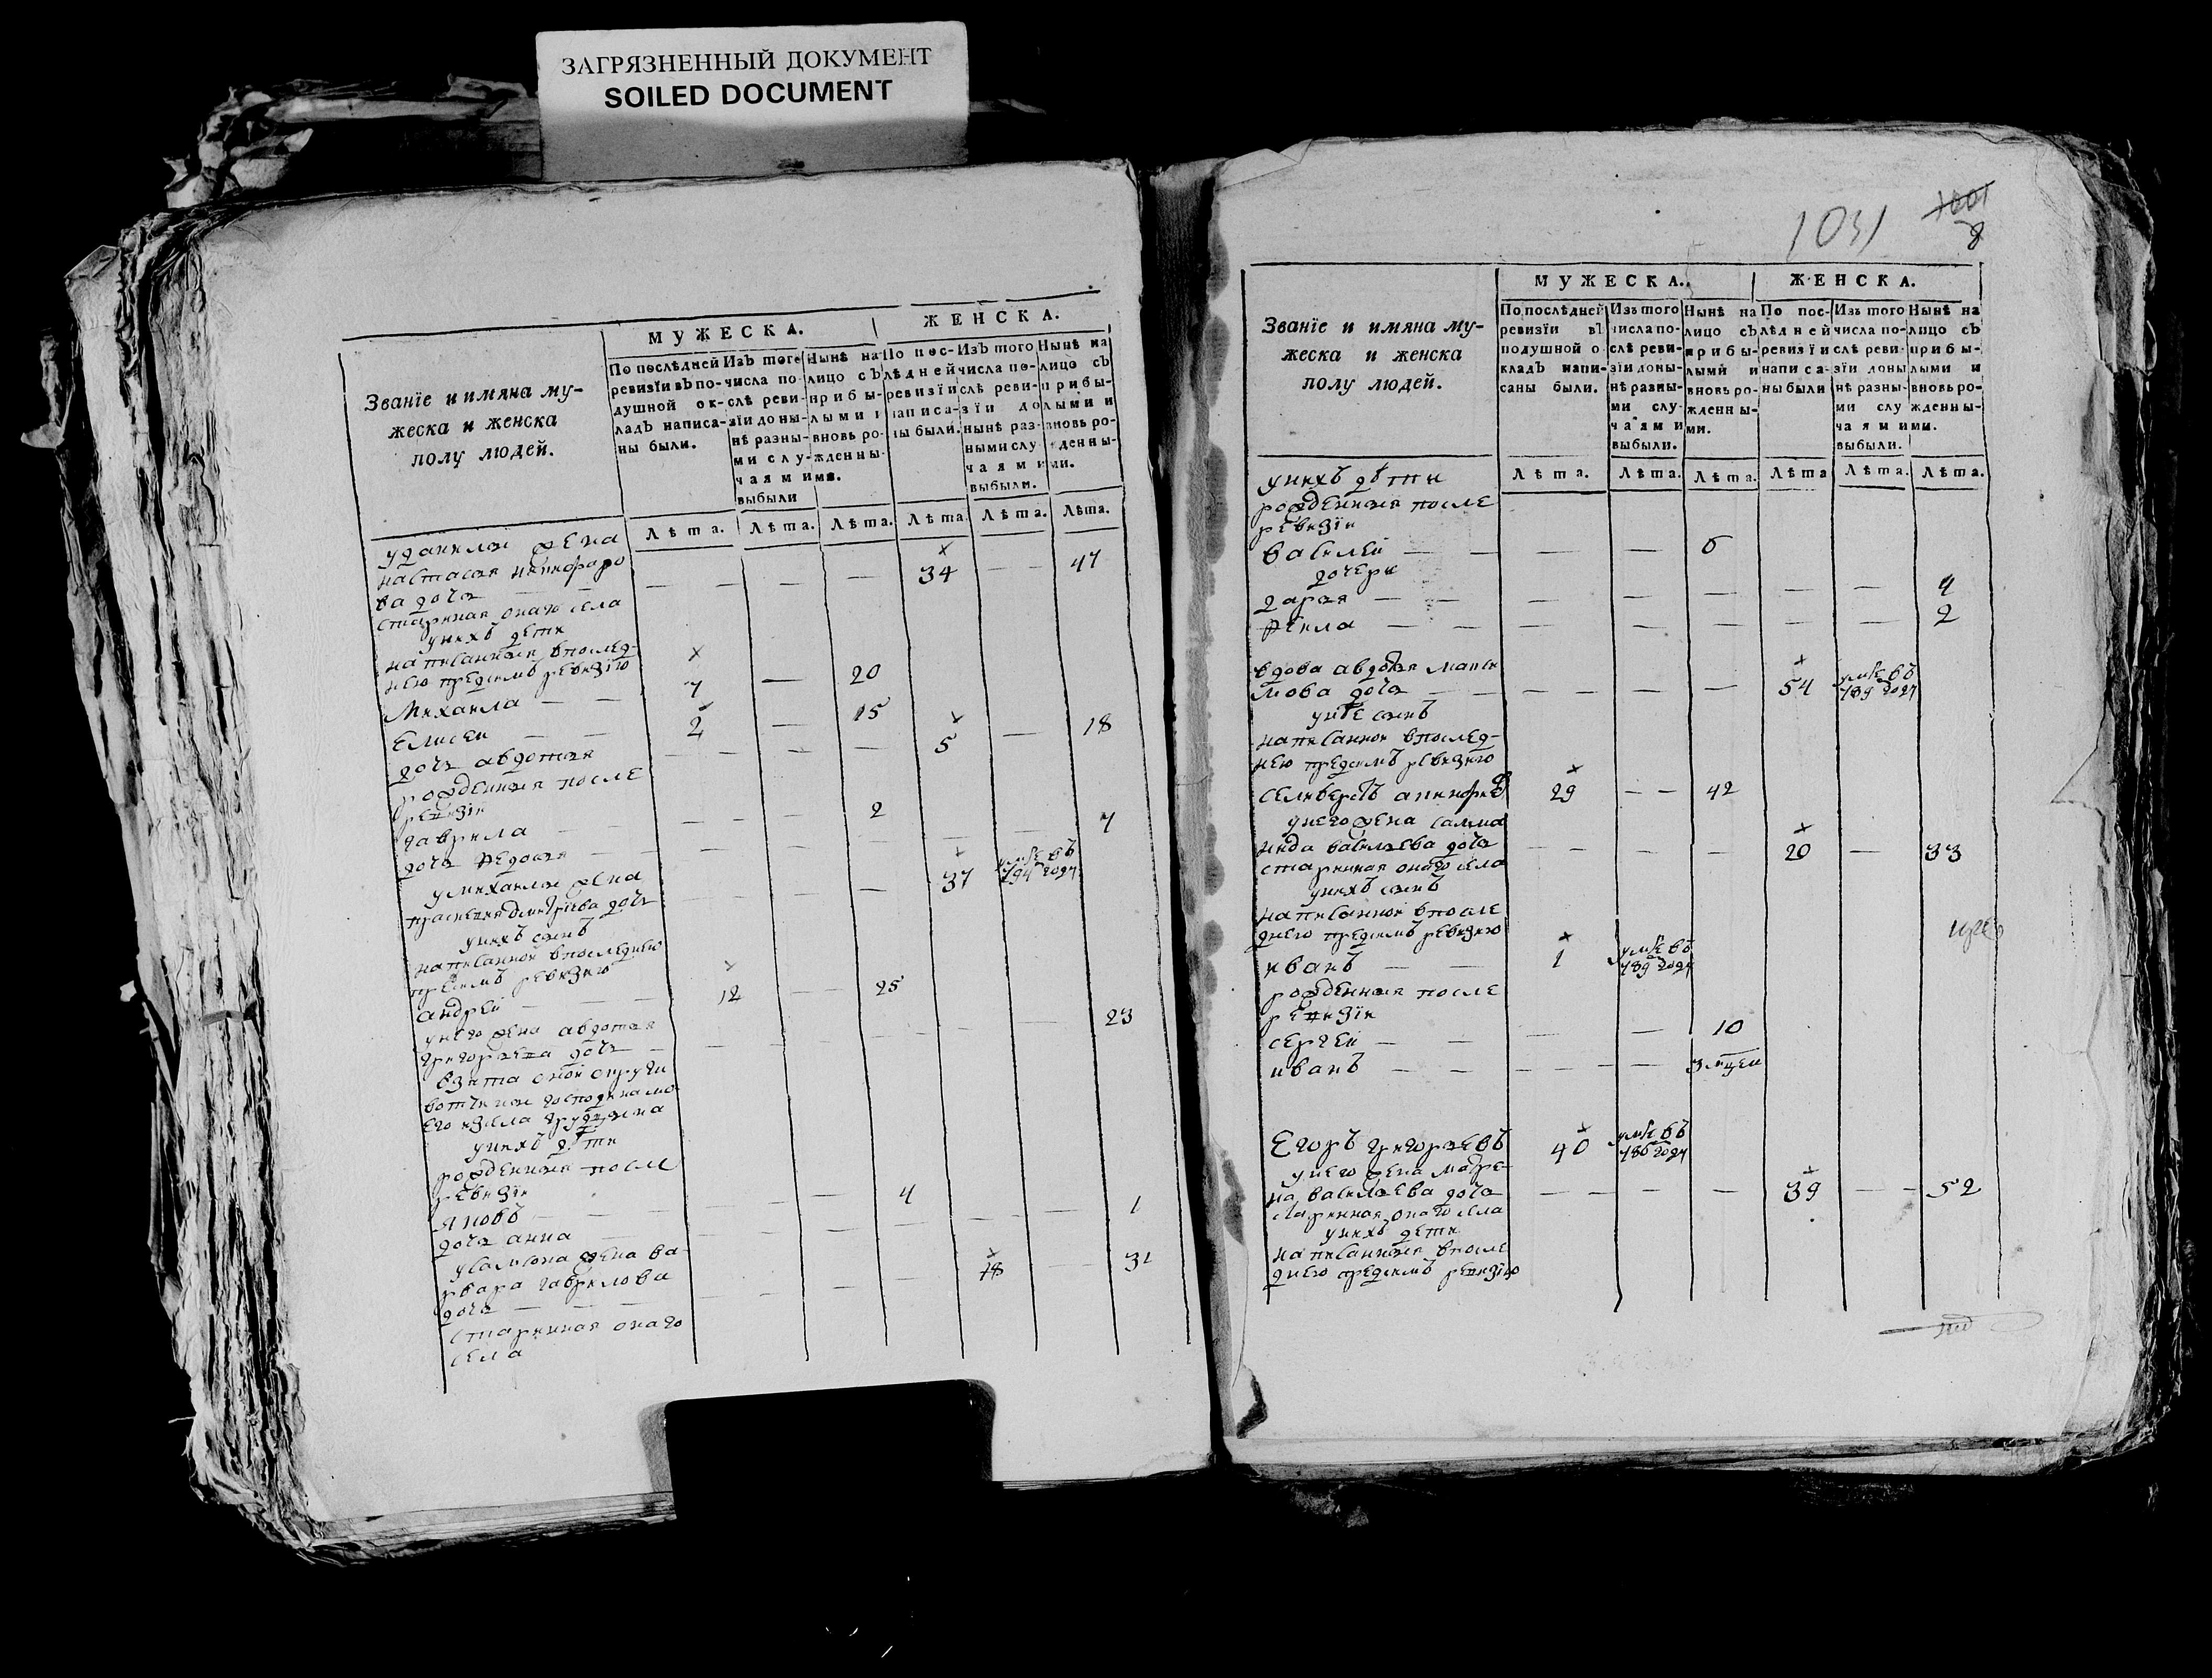 ЗАГРЯЗНЕННЫЙ ДОКУМЕНТ
SOILED DOCUMENT
Званїе и имяна му-
жеска и женска
полу людей.
МУЖЕСКА.
ЖЕНСКА.
По послѣдней ревизїи въ по-душной ок-ладъ написа-ны были.
Изъ того числа по-слѣ реви-зїи доны-нѣ разны-ми слу-чаями выбыли
Нынѣ на лицо съ прибы-лыми и вновь ро-жденны-ми.
По пос-лѣдней ревизїи написа-ны были.
Изъ того числа по-слѣ реви-зїи до нынѣ раз-ными слу-чаями выбыли.
Нынѣ на лицо съ прибы-лыми и вновь ро-жденны-ми.
Лѣта. Лѣта. Лѣта. Лѣта. Лѣта. Лѣта.
уданилы жена
настасья никифоро
ва дочь 34 47
старинная оного села
унихъ дети
написанныя впослед-
нею предсимъ ревизїю
Михаила 7 20
Елисеи 2 15
дочь авдотья 5 18
рожденныя после
ревизїи
гаврила 2
дочь Федосья 7
умихаилы жена
прасковья дмитриева дочь 37 умре въ 794 году
унихъ сынъ
написанной впоследнею
предсимъ ревизїю
андрей 12 25
унего жена авдотья
григорьева дочь 23
взята оной округи
вотчины господина мо
его изсела
унихъ дѣти
рожденныя после
ревизїи
яковъ 4
дочь анна 1
усамсона жена ва
рвара гаврилова
дочь 18 31
старинная оного
села
1031 1001
8
Званїе и имяна му-
жеска и женска
полу людей.
МУЖЕСКА.
ЖЕНСКА.
По послѣдней ревизїи въ подушной о-кладъ напи-саны были.
Изъ того числа по-слѣ реви-зїи доны-нѣ разны-ми слу-чаями выбыли.
Нынѣ на лицо съ прибы-лыми и вновь ро-жденны-ми.
По пос-лѣдней ревизїи написа-ны были
Изъ того числа по-слѣ реви-зїи доны-нѣ разны-ми слу-чаями выбыли.
Нынѣ на лицо съ прибы-лыми и вновь ро-жденны-ми.
Лѣта. Лѣта. Лѣта. Лѣта Лѣта. Лѣта.
унихъ дѣти
рожденныя после
ревизїи
василей 6
дочери
дарья 4
Фекла 2
вдова авдотья макси
мова дочь 54 умре въ 789 году
унѣе сынъ
написанной впослед-
нею предсимъ ревизию
селиверстъ 29 42
унего жена салма
нида васильева дочь 20 33
старинная оного села
унихъ сынъ
написанной впосле
днею предсимъ ревизию
иванъ 1 умре въ 789 году
рожденныя после
ревизїи
сергей 10
иванъ 3 мцеи
Егоръ григорьевъ 40 умре въ 786 году
унего жена матре
на васильева дочь 39 52
старинная оного села
унихъ дети
написанныя впосле
днею предсимъ ревизїю